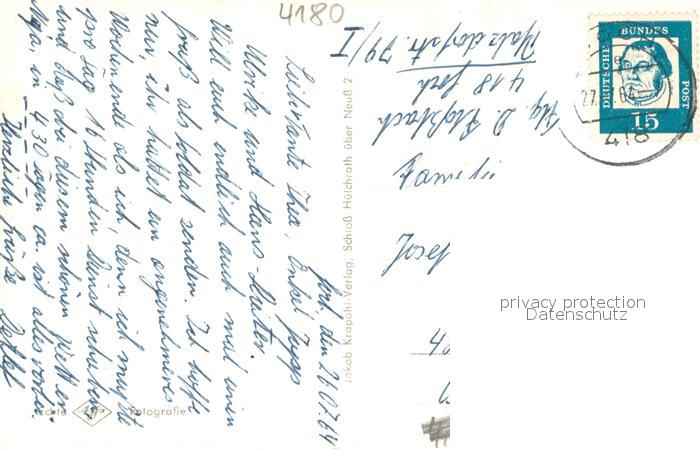 4180
Goch den 26.07.64
Liebe Tante Thea, Onkel Jupp
Ulrike und Hans-Dieter.
Will euch endlich auch mal einen
Gruß als Soldat senden. Ich hoffe
nur, ihr hattet ein angenehmeres
Wochenende als ich, denn ich mußte
pro Tag 16 Stunden Dienst schieben
und daß bei diesem schönen Wetter.
Naja, in 430 Tagen ca. ist alles vorbei.
Herzliche Grüße Detlef
Jakob Krapohl-Verlag, Schloß Hülchrath über Neuß 2
Echte Agfa Fotografie
Flg. D.
418 Goch
Pfalzdorfstr. 79/I
Familie
Josef
4
DEUTSCHE BUNDESPOST
15
27.
64
418
privacy protection
Datenschutz